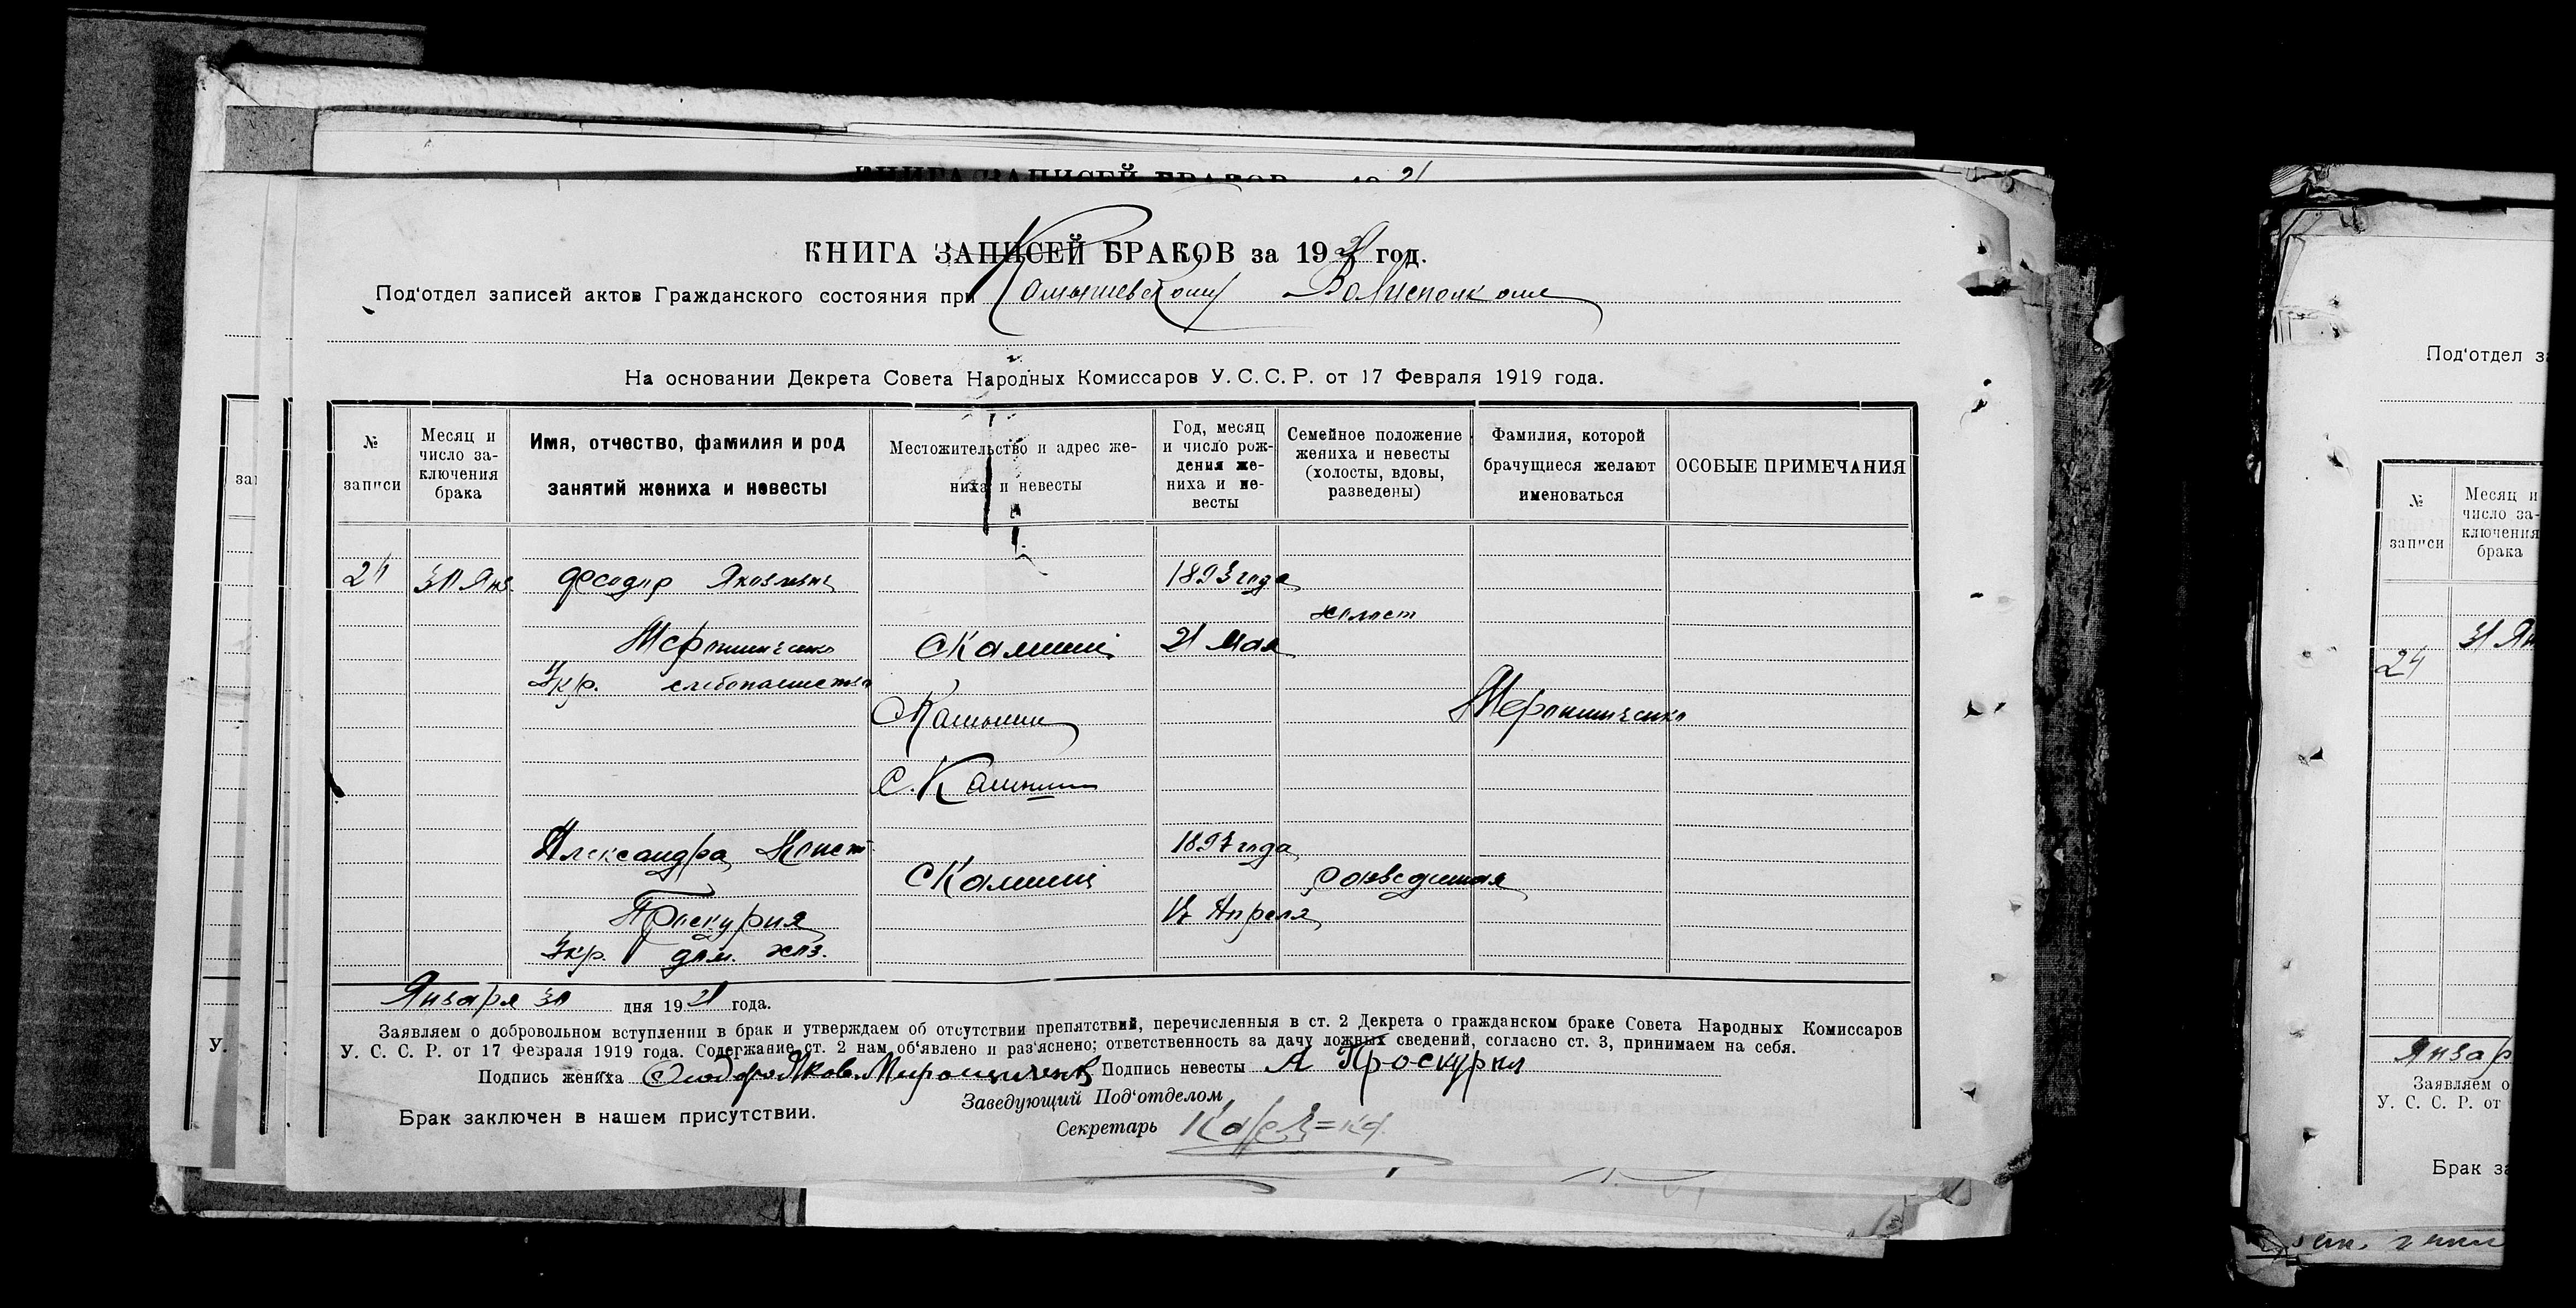 КНИГА ЗАПИСЕЙ БРАКОВ за 1921 год.
Под‘отдел записей актов Гражданского состояния при Волисполкоме
На основании Декрета Совета Народных Комиссаров У. С. С. Р. от 17 Февраля 1919 года.
№ записи
Месяц и число заключения брака
Имя, отчество, фамилия и род занятий жениха и невесты
Местожительство и адрес жениха и невесты
Год, месяц и число рождения жениха и невесты
Семейное положение жениха и невесты (холосты, вдовы, разведены)
Фамилия, которой брачущиеся желают именоваться
ОСОБЫЕ ПРИМЕЧАНИЯ
30 Янв. Феодор Яковлевич 1893 года
холост
21 Мая
Укр. хлебопашество
Александра Конст. 1897 года
разведенная
Проскурня Апреля
Укр. дом. хоз.
Января 30 дня 1921 года.
Заявляем о добровольном вступлении в брак и утверждаем об отсутствии препятствий, перечисленныя в ст. 2 Декрета о гражданском браке Совета Народных Комиссаров
У. С. С. Р. от 17 Февраля 1919 года. Содержание ст. 2 нам об‘явлено и раз‘яснено; ответственность за дачу ложных сведений, согласно ст. 3, принимаем на себя.
Подпись жениха Феодор Яков. Мирошниченко Подпись невесты А Проскурня
Заведующий Под‘отделом
Брак заключен в нашем присутствии.
Секретарь
Под‘отдел
№ записи
Месяц и число заключения брака
24
31 Ян
Январ
Заявляем о
У. С. С. Р. от
Брак